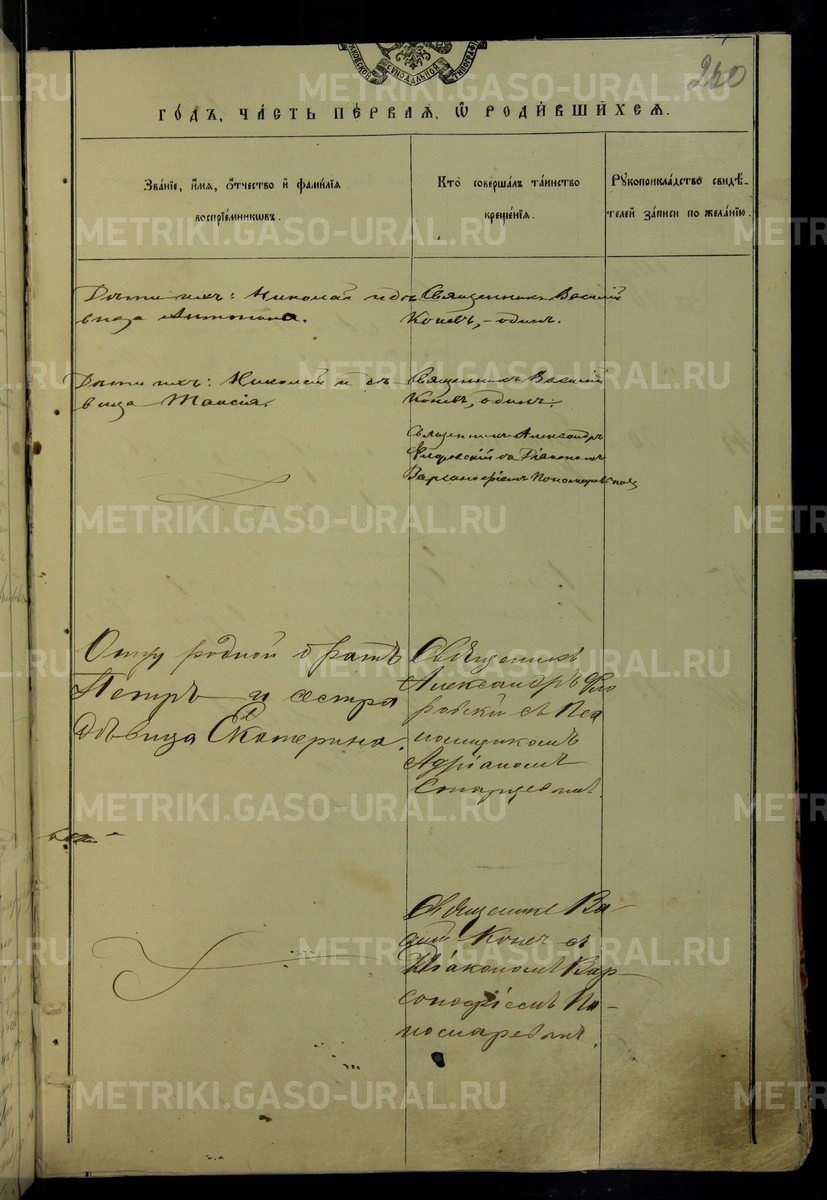 260
МОСКОВСКОЙ СѴНОДАЛЬНОЙ ТИПОГРАФІИ
ГОДЪ, ЧАСТЬ ПЕРВАЯ, Ѡ РОДИВШИХСЯ.
Званіе, имя, отчество и фамилія
воспріемниковъ.
Кто совершалъ таинство
крещенія.
Рукоприкладство свидѣ-
телей записи по желанію.
Дѣти ихъ: Николай и дѣ-
вица Антонина.
Священникъ Василій
Коневъ, - одинъ.
Дѣти ихъ: Николай и дѣ-
вица Таисія.
Священникъ Василій
Коневъ, одинъ.
Священникъ Александръ
съ Діакономъ
Варсанофіемъ Пономаревымъ
Отцу родной братъ
Петръ и сестра
дѣвица Екатерина.
Священникъ
Александръ Фло
ровскій съ Пса
ломщикомъ
Адріаномъ
Священникъ Ва
силій Коневъ съ
Діакономъ Вар-
сонофіемъ По-
номаревымъ.
METRIKI.GASO-URAL.RU